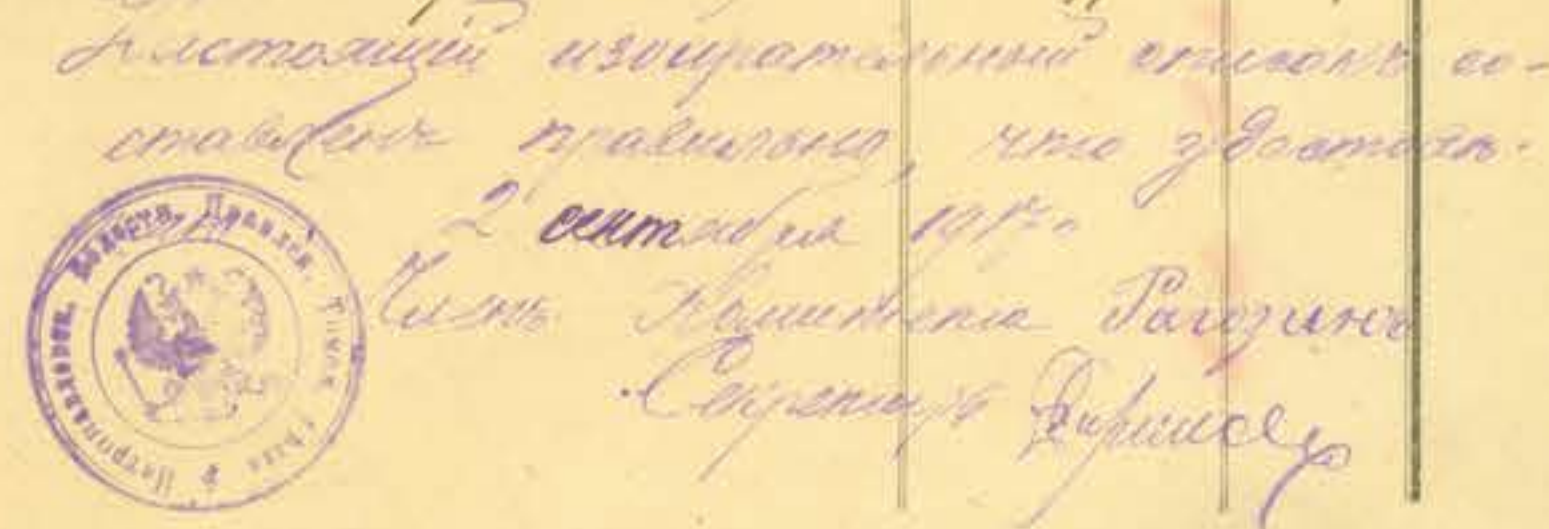 настоящий избирательный списокъ со-
ставленъ правильно, что удостовѣ-
2 сентября 1917 г.
Членъ Комитета Рагозинъ
Секретарь
Петропавловск. Волостн. Правлен.